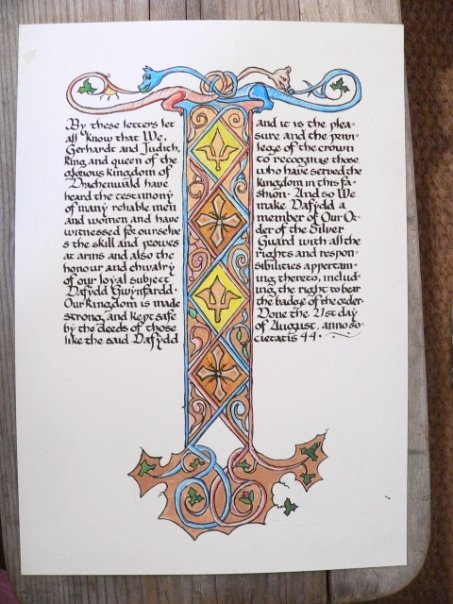 By these letters let
all know that We,
Gerhardt and Judith,
King and queen of the
glorious kingdom of
Drachenwald have
heard the testimony
of many reliable men
and women and have
witnessed for ourselve
s the skill and prowes
at arms and also the
honour and chivalry
of our loyal subject
Dafydd Gwynfardd.
Our Kingdom is made
strong and kept safe
by the deeds of those
like the said Dafydd
and it is the plea-
sure and the privi-
lege of the crown
to recognize those
who have served the
kingdom in this fa-
shion. And so We
make Dafydd a
member of Our Or-
der of the Silver
Guard with all the
rights and respon-
sibilities appertain-
ing thereto, includ-
ing the right to bear
the badge of the order.
Done the 21st day
of August, anno so-
cietatis 44.